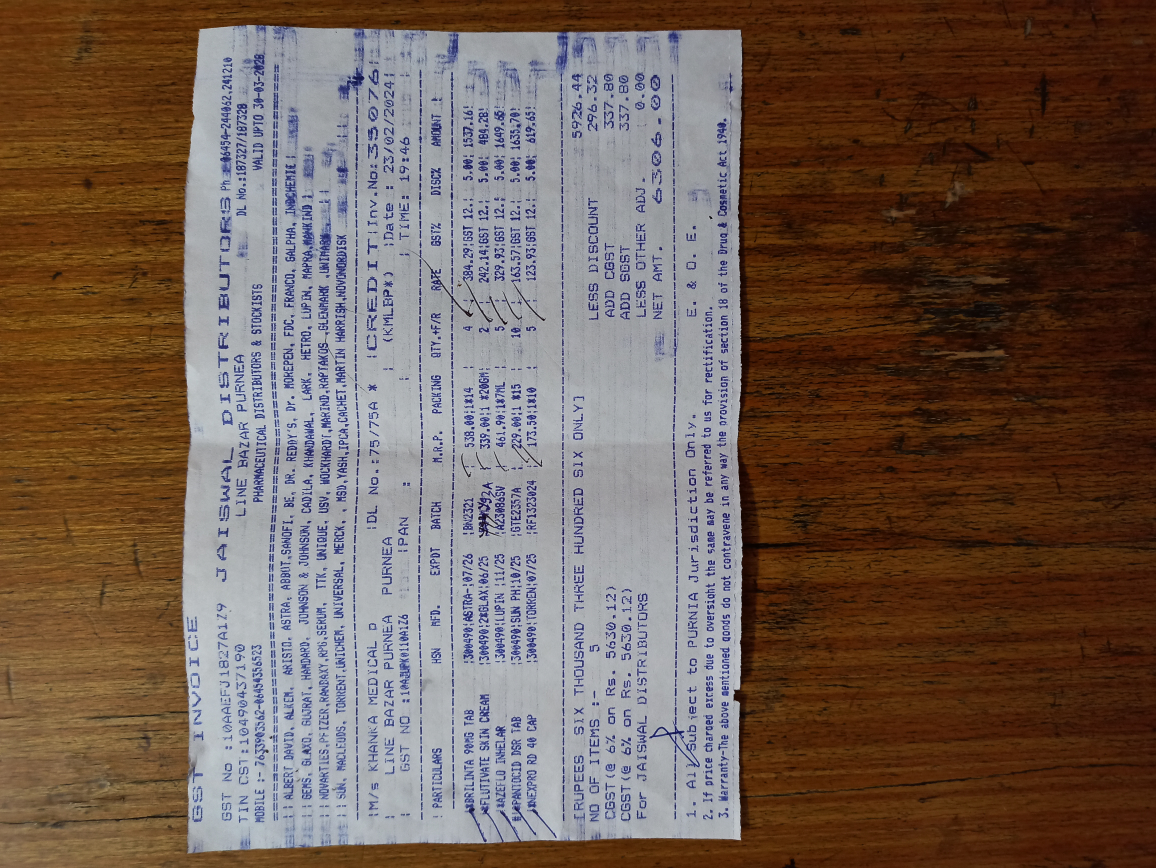 GST INVOICE
GST No :10AAEFJ1827A1Z9 JAISWAL DISTRIBUTORS Ph 06454-244062,241210
TIN CST:10490437190 LINE BAZAR PURNEA DL No.:187327/187328
MOBILE :- 7633903562-06454356523 PHARMACEUTICAL DISTRIBUTORS & STOCKISTS VALID UPTO 30-03-2028
ALBERT DAVID, ALKEM, ARISTO, ASTRA, ABBOT,SANOFI, BE, DR. REDDY'S, Dr. MOREPEN, FDC, FRANCO, GALPHA, INDCHEMIE
GEMS, GLAXO, GUJRAT, HAMDARD, JOHNSON & JOHNSON, CADILA, KHANDAWAL, LARK, HETRO, LUPIN, MAPRA,MANKIND
NOVARTIES,PFIZER,RANBAXY,RPG,SERUM, TTK, UNIQUE, USV, WOCKHARDT,MARIND,RAPTAKOS ,GLENMARK ,UNIMARK
SUN, MACLEODS, TORRENT,UNICHEM, UNIVERSAL, MERCK, , MSD,YASH,IPCA,CACHET,MARTIN HARRISH,NOVONORDISK
M/s KHANKA MEDICAL D DL No.:75/75A * CREDIT Inv.No:35076
LINE BAZAR PURNEA PURNEA (KMLBP*) Date : 23/02/2024
GST NO PAN : TIME: 19:46
PARTICULARS HSN MFD. EXPDT BATCH M.R.P. PACKING QTY.+F/R RATE GST% DISC% AMOUNT
*BRILINTA 90MG TAB 300490 ASTRA- 07/26 BN2321 538.00 1*14 4 384.29 GST 12. 5.00 1537.16
*FLUTIVATE SKIN CREAM 300490 2*GLAX 06/25 339.00 1 *20GM 2 242.14 GST 12. 5.00 484.28
*AZEFLO INHELAR 300490 LUPIN 11/25 461.90 1*7ML 5 329.93 GST 12. 5.00 1649.65
*PANTOCID DSR TAB 300490 SUN PH 10/25 GTE2357A 229.00 1 *15 10 163.57 GST 12. 5.00 1635.70
*NEXPRO RD 40 CAP 300490 TORREN 07/25 RF1323024 173.50 1*10 5 123.93 GST 12. 5.00 619.65
[RUPEES SIX THOUSAND THREE HUNDRED SIX ONLY] 5926.44
NO OF ITEMS :- 5 LESS DISCOUNT 296.32
CGST(@ 6% on Rs. 5630.12) ADD CGST 337.80
CGST(@ 6% on Rs. 5630.12) ADD SGST 337.80
For JAISWAL DISTRIBUTORS LESS OTHER ADJ. 0.00
NET AMT. 6306.00
1. All Subject to PURNIA Jurisdiction Only. E. & O. E.
2. If price charged excess due to oversight the same may be referred to us for rectification.
3. Warranty-The above mentioned goods do not contravene in any way the provision of section 18 of the Drug & Cosmetic Act 1940.